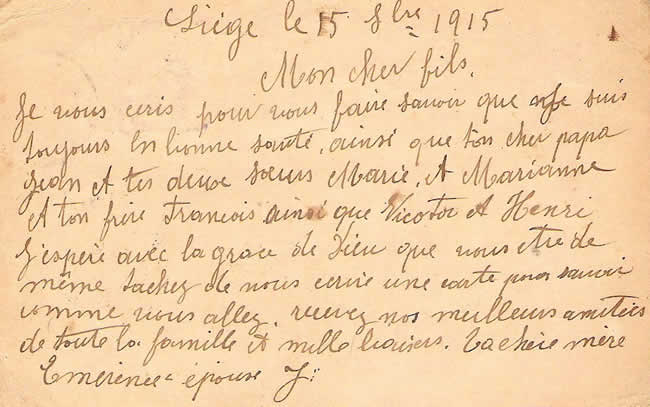 Liége le 15 Sbre 1915
Mon cher fils.
Je vous ecris pour vous faire savoir que je suis
toujours en bonne santé, ainsi que ton cher papa
Jean et tes deux sœurs Marie, et Marianne
et ton frère Francois ainsi que Victor et Henri
J'espère avec la grace de Dieu que vous etre de
même tachez de nous ecrire une carte pour savoir
comme vous allez. recevez nos meilleurs amitiés
de toute la famille et mille baisers. ta chère mère
épouse J